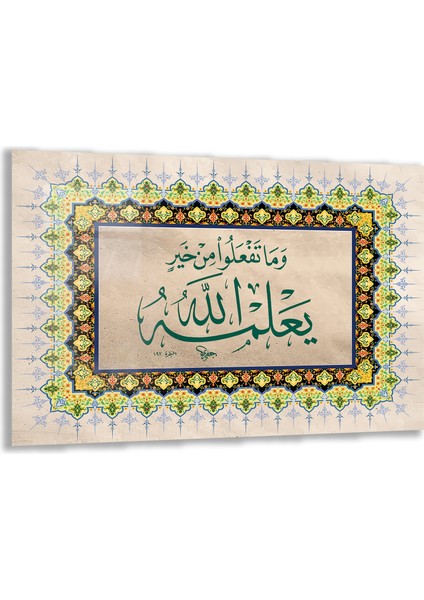 وَمَا تَفْعَلُوا مِنْ خَيْرٍ
يَعْلَمْهُ اللَّهُ
البقرة ١٩٧